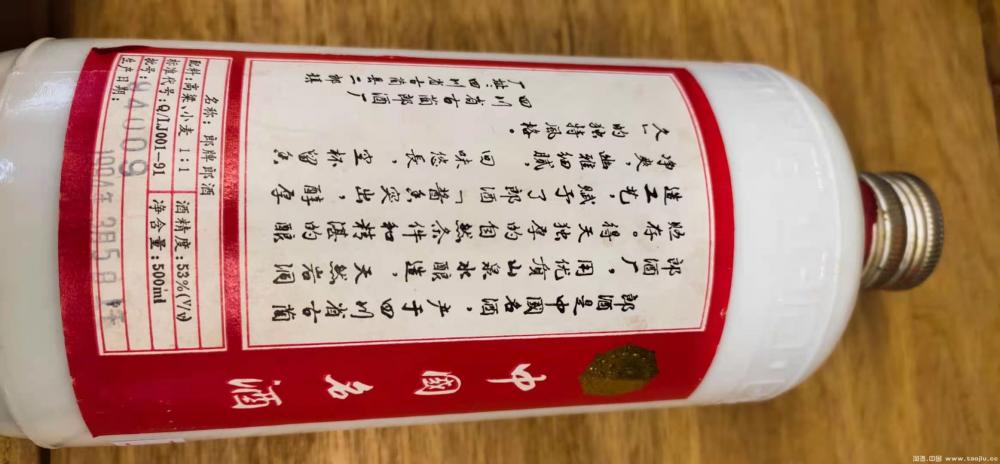 中國名酒
郎酒是中國名酒，产于四川省古蔺
郎酒厂，用优质山泉水酿造，天然岩洞
贮存。得天独厚的自然条件和精湛的酿
造工艺，赋于了郎酒「酱香突出，醇厚
净爽，幽雅细腻，回味悠長，空杯留香
久」的独特風格。
四川省古蔺郎酒厂
厂址：四川省古蔺县二郎镇
名称：郎牌郎酒 酒精度：53%(V/V)
配料：高粱、小麦 1：1
标准代号：Q/LJ001-91 净含量：500ml
批号：940009
生产日期：
淘酒.中国 www.taojiu.cc